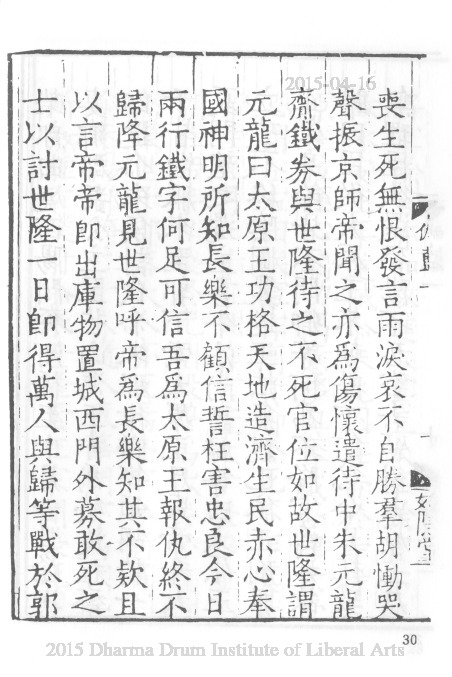 喪生死無恨發言雨淚哀不自勝羣胡慟哭
聲振京師帝聞之亦爲傷懷遣待中朱元龍
齎鐵券與世隆待之不死官位如故世隆謂
元龍曰太原王功格天地造濟生民赤心奉
國神明所知長樂不顧信誓枉害忠良今日
兩行鐵字何足可信吾爲太原王報仇終不
歸降元龍見世隆呼帝爲長樂知其不欵且
以言帝帝卽出庫物置城西門外募敢死之
士以討世隆一日卽得萬人與歸等戰於郭
2015-04-16
30
2015 Dharma Drum Institute of Liberal Arts